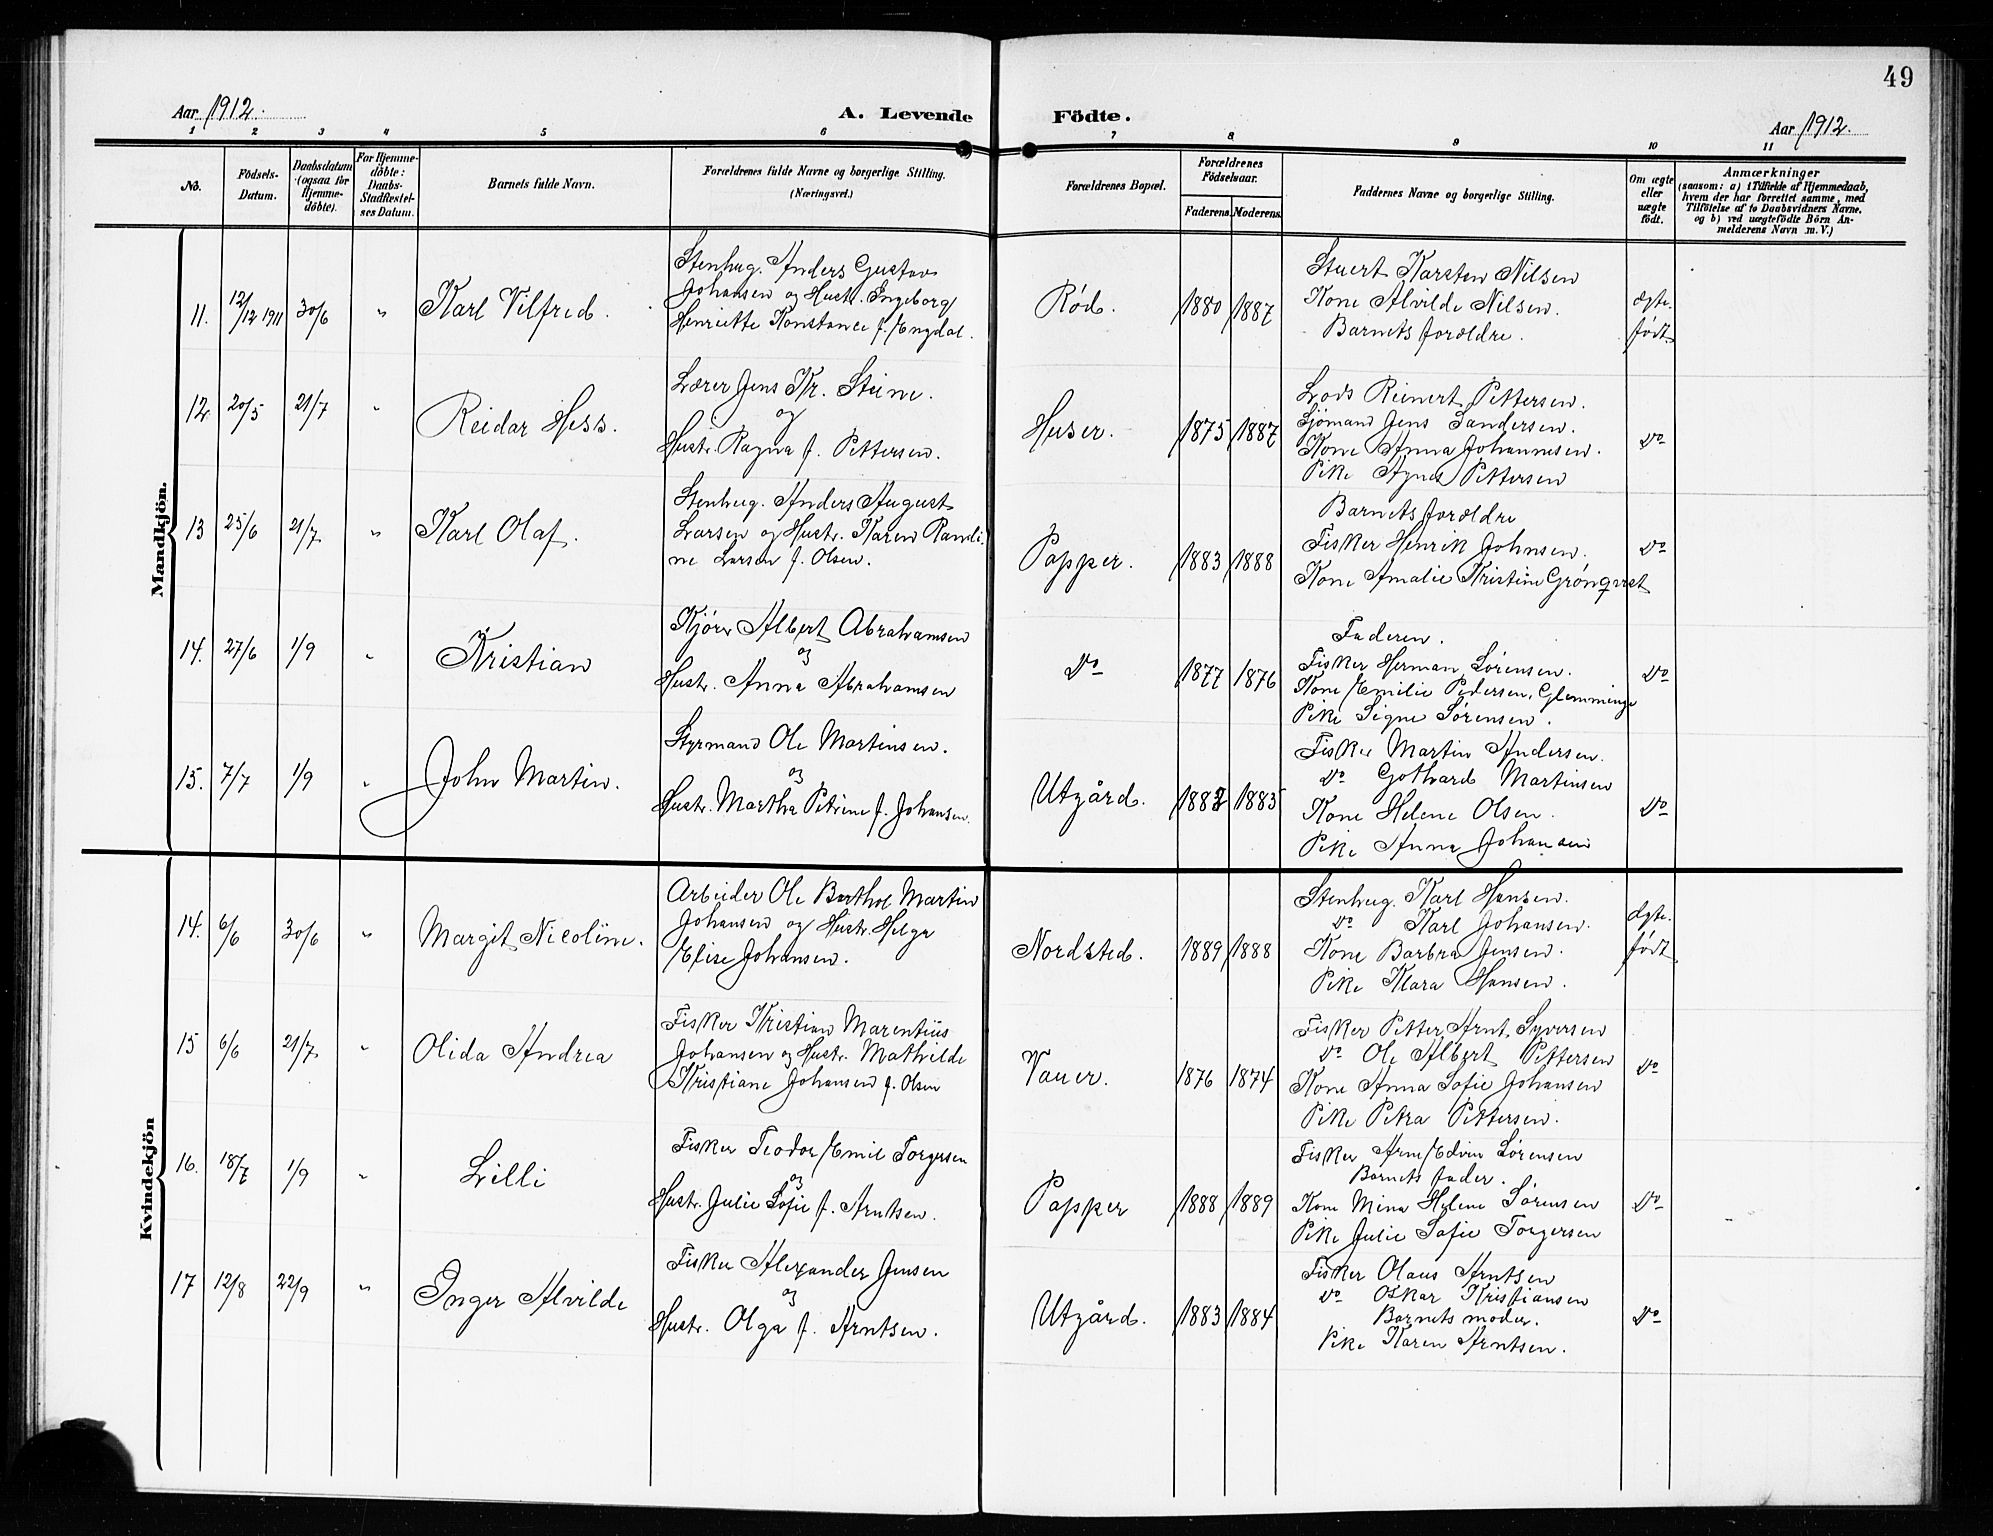 49
Aar 1912.
A. Levende Födte.
Aar 1912.
1 2 3 4 5 6 7 8 9 10 11
No.
Födsels-Datum.
Daabsdatum (ogsaa for Hjemme-döbte).
For Hjemme-döbte: Daabs-Stadfæstel-ses Datum.
Barnets fulde Navn.
Forældrenes fulde Navne og borgerlige Stilling.
(Næringsvei.)
Forældrenes Bopæl.
Forældrenes Födselsaar.
Faderens. Moderens.
Faddernes Navne og borgerlige Stilling.
Om ægte eller uægte født.
Anmærkninger
(saasom: a) i Tilfælde af Hjemmedaab,
hvem der har forrettet samme, med
Tilföielse af to Daabsvidners Navne,
og b) ved uægtefödte Börn An-
melderens Navn m. V.)
Mandkjön.
11. 12/12 1911 30/6 " Karl Vilfred.
Stenhug. Anders Gustav
Johansen og Hustr. Ingeborg
Henriette Konstance f. Engdal.
Rød. 1880 1887
Stuert Karsten Nilsen
Kone Alvilde Nilsen.
Barnets forældre.
ægte-
født
12 20/5 21/7 " Reidar Hess.
Lærer Jens Kr. Stene.
og
Hustr. Ragna f. Pettersen.
Huser. 1875 1887
Lods Reinert Pettersen.
Sjömand Jens Sandersen.
Kone Anna Johannesen.
Pike Agnes Pettersen
do
13 25/6 21/7 " Karl Olaf.
Stenhug. Anders August
Larsen og Hustr. Karen Randi-
ne Larsen f. Olsen.
Papper. 1883 1888
Barnets forældre
Fisker Henrik Johnsen.
Kone Amalie Kristine Grönqvist
do
14. 27/6 1/9 " Kristian
Kjörer Albert Abrahamsen
og
Hustr. Anna Abrahamsen
do 1877 1876
Faderen.
Fisker Herman Sörensen.
Kone Emilie Pedersen, Glemminge
Pike Signe Sörensen.
do
15. 7/7 1/9 " John Martin.
Styrmand Ole Martinsen.
og
Hustr. Martha Petrine f. Johansen.
Utgård. 1882 1885
Fisker Martin Andersen.
do Gothard Martinsen
Kone Helene Olsen.
Pike Anna Johansen
do
Kvindekjön
14. 6/6 30/6 " Margit Nicoline.
Arbeider Ole Berthol Martin
Johansen og Hustr. Helga
Elise Johansen.
Nordsted. 1889 1888
Stenhug. Karl Hansen.
do Karl Johansen.
Kone Barbra Jensen.
Pike Klara Hansen.
Ægte-
født
15 6/6 21/7 " Olida Andrea
Fisker Kristian Marentius
Johansen og Hustr. Mathilde
Kristiane Johansen f. Olsen
Vauer. 1876 1874
Fisker Petter Arnt. Syversen
do Ole Albert Pettersen
Kone Anna Sofie Johansen
Pike Petra Pettersen.
do
16. 18/7 1/9 " Lilli
Fisker Teodor Emil Torgersen
og
Hustr. Julie Sofie f. Arntsen.
Papper 1888 1889
Fisker Arne Edvin Sörensen
Barnets fader.
Kone Mina Helene Sörensen
Pike Julie Sofie Torgersen
do
17 12/8 22/9 " Inger Alvilde
Fisker Alexander Jensen
og
Hustr. Olga f. Arntsen.
Utgård. 1883 1884
Fisker Olaus Arntsen
do Oskar Kristiansen
Barnets moder.
Pike Karen Arntsen.
do